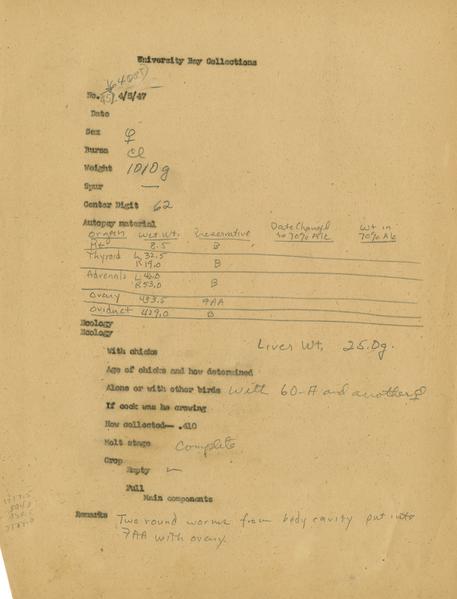 University Bay Collections
No. 4/5/47
Date
Sex ♀
Bursa Cl
Weight 1010g
Spur —
Center Digit 62
Autopsy material
Organ Wet Wt. Preservative Date Chang'd to 70% Alc Wt in 70% Alc
Pit 8.5 B
Thyroid L 32.5
R 19.0 B
Adrenals L
R 53.0 B
Ovary FAA
Oviduct 429.0 B
Ecology
Ecology
Liver Wt. 25.0g.
With chicks
Age of chicks and how determined
Alone or with other birds With 60-A and another ♀
If cock was he crowing
How collected-- .410
Molt stage Complete
Crop
Empty ✓
Full
Main components
Remarks Two round worms from body cavity put into
FAA with ovary.